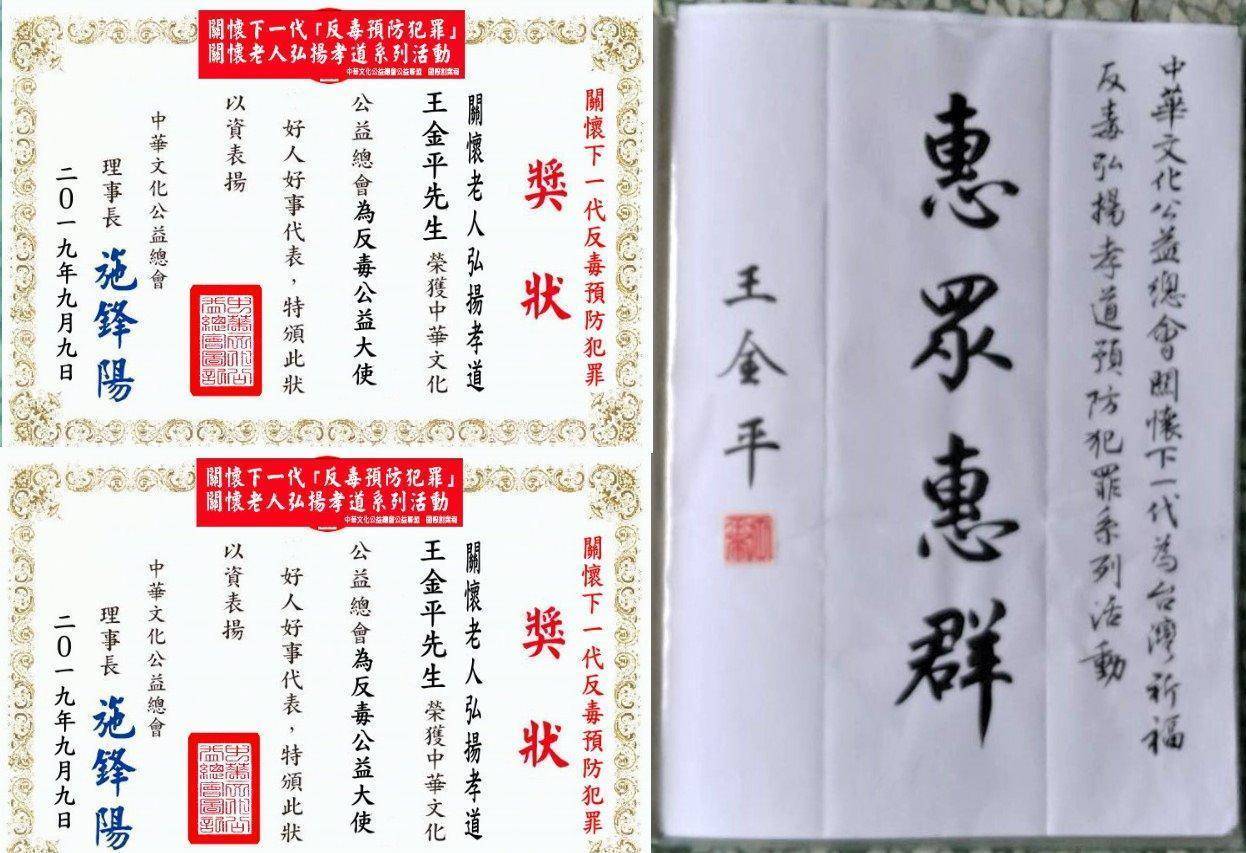 關懷下一代「反毒預防犯罪」
關懷老人弘揚孝道系列活動
中華文化公益總會公益聯盟 國際創業家
關懷下一代反毒預防犯罪
獎狀
關懷老人弘揚孝道
王金平先生 榮獲中華文化
公益總會為反毒公益大使
好人好事代表，特頒此狀
以資表揚
中華文化公益總會
理事長 施鋒陽
二０一九年九月九日
關懷下一代「反毒預防犯罪」
關懷老人弘揚孝道系列活動
關懷下一代反毒預防犯罪
獎狀
關懷老人弘揚孝道
王金平先生 榮獲中華文化
公益總會為反毒公益大使
好人好事代表，特頒此狀
以資表揚
中華文化公益總會
理事長 施鋒陽
二０一九年九月九日
中華文化公益總會關懷下一代為台灣祈福
反毒弘揚孝道預防犯罪系列活動
惠眾惠群
王金平